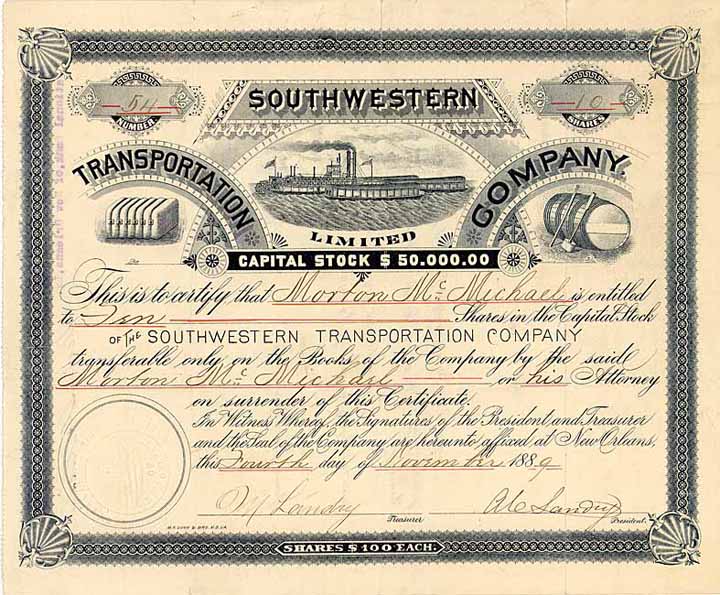 54
NUMBER
SOUTHWESTERN
10
SHARES
TRANSPORTATION
COMPANY.
LIMITED
CAPITAL STOCK $ 50.000.00
This is to certify that Morton Mc Michael is entitled
to Ten Shares in the Capital Stock
OF THE SOUTHWESTERN TRANSPORTATION COMPANY
transferable only on the Books of the Company by the said
Morton Mc Michael or his Attorney
on surrender of this Certificate.
In Witness Whereof, the Signatures of the President and Treasurer
and the Seal of the Company are hereunto affixed at New Orleans,
this Fourth day of November 1889
Landry
Landry
Treasurer
President.
SHARES $ 100 EACH.